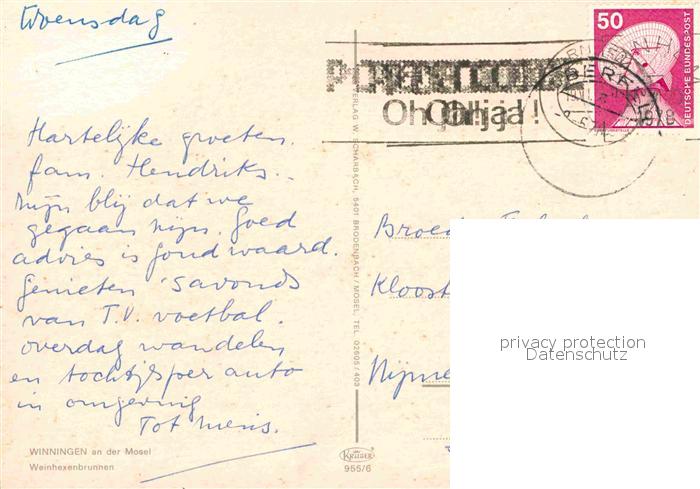 Woensdag
Hartelijke groeten.
fam. Hendriks..
zijn blij dat we
gegaan zijn. Goed
advies is goud waard.
Genieten 's avonds
van T.V. voetbal.
overdag wandelen
en tochtjes per auto
in omgeving
Tot ziens.
WINNINGEN an der Mosel
Weinhexenbrunnen
VERLAG W. SCHARBACH, 5401 BRODENBACH / MOSEL, TEL. 02605 / 403
KRÜGER
955/6
50
DEUTSCHE BUNDESPOST
Oh ja!
Broed
Kloost
Nijme
privacy protection
Datenschutz